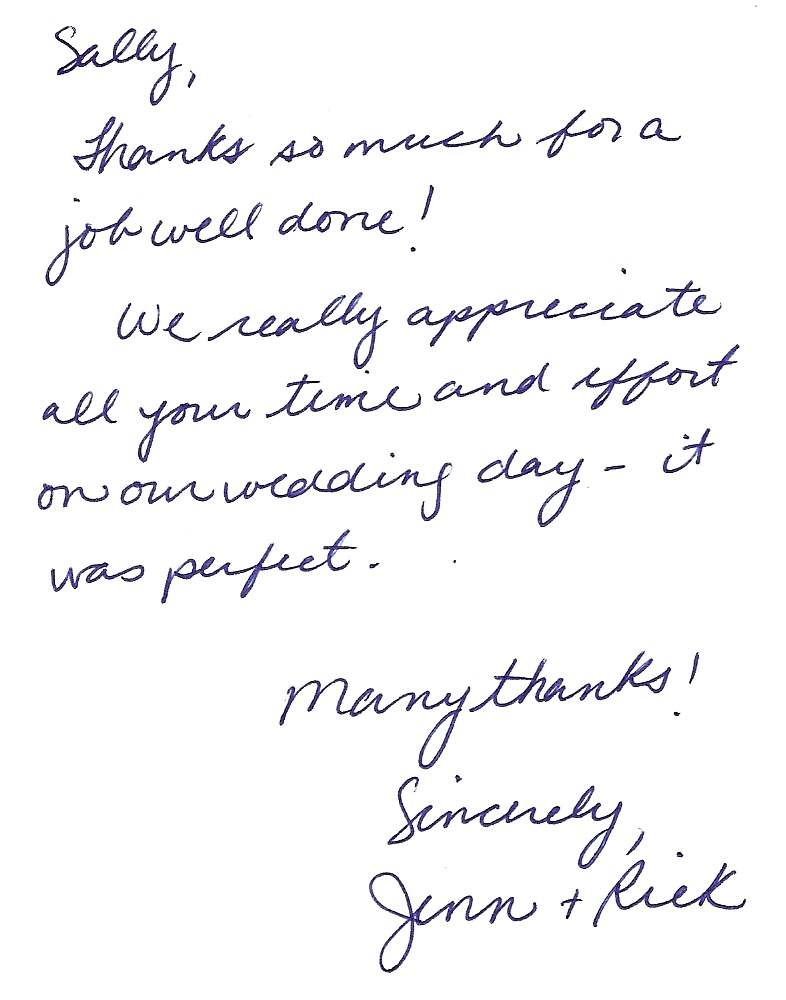 Sally,
Thanks so much for a
job well done!
We really appreciate
all your time and effort
on our wedding day - it
was perfect.
Many thanks!
Sincerely,
Jenn + Rick